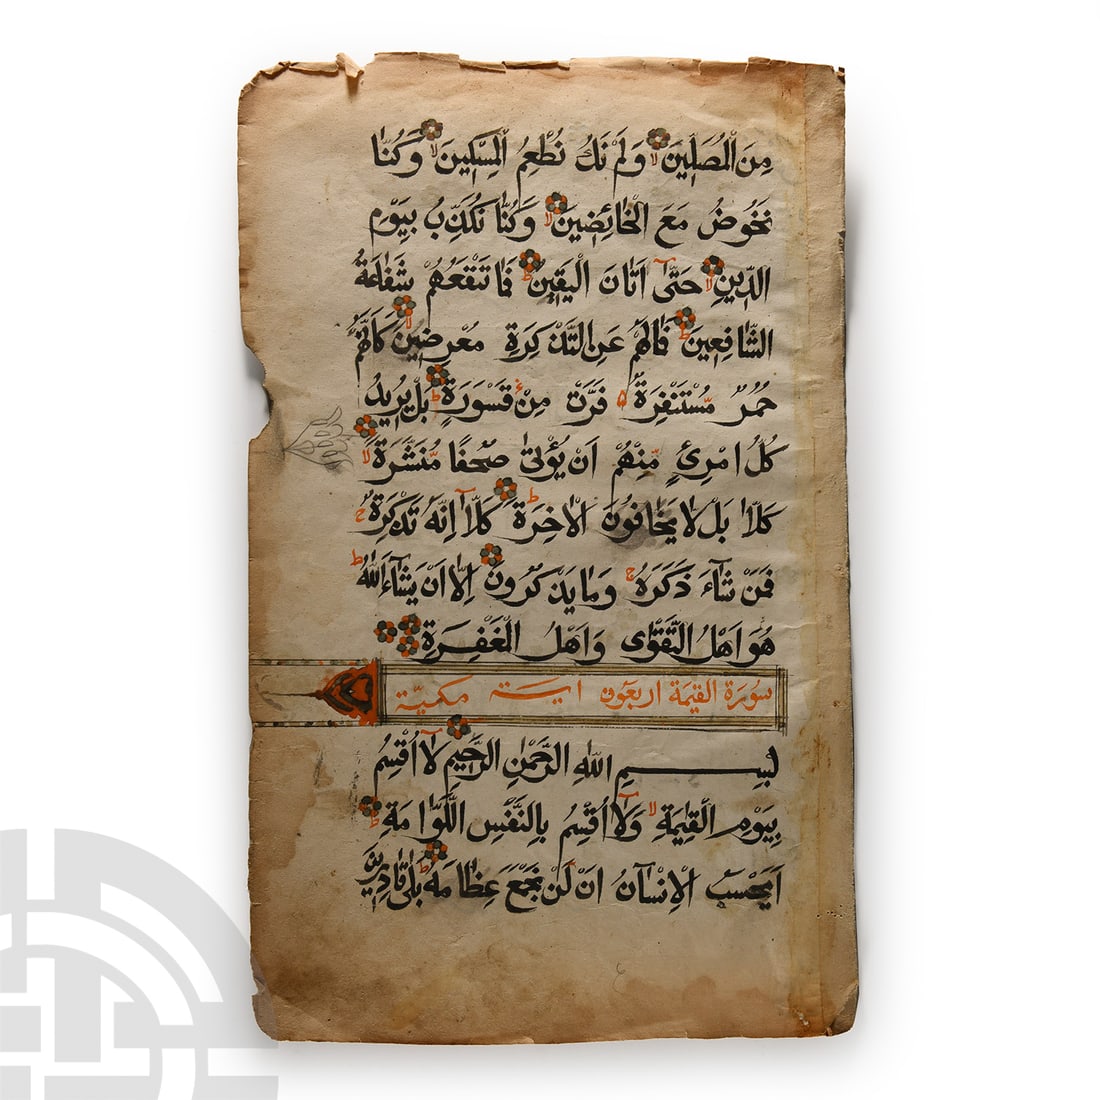 مِنَ الْمُصَلِّينَ لا وَلَمْ نَكُ نُطْعِمُ الْمِسْكِينَ لا وَكُنَّا
نَخُوضُ مَعَ الْخَائِضِينَ لا وَكُنَّا نُكَذِّبُ بِيَوْمِ
الدِّينِ لا حَتَّىٰ اَتَانَ الْيَقِينُ ط فَمَا تَنْفَعُهُمْ شَفَاعَةُ
الشَّافِعِينَ ط فَمَالَهُمْ عَنِ التَّذْكِرَةِ مُعْرِضِينَ لا كَاَنَّهُمْ
حُمُرٌ مُسْتَنْفِرَةٌ فَرَّتْ مِنْ قَسْوَرَةٍ ط بَلْ يُرِيدُ
كُلُّ امْرِئٍ مِنْهُمْ اَنْ يُؤْتٰى صُحُفًا مُنَشَّرَةً لا
كَلَّا بَلْ لَا يَخَافُونَ الْاٰخِرَةَ ط كَلَّا اِنَّهُ تَذْكِرَةٌ ج
فَمَنْ شَآءَ ذَكَرَهُ ج وَمَا يَذْكُرُونَ اِلَّا اَنْ يَشَآءَ اللّٰهُ ط
هُوَ اَهْلُ التَّقْوٰى وَاَهْلُ الْمَغْفِرَةِ
سُورَةُ الْقِيٰمَةِ اربعون اية مكيّة
بِسْمِ اللّٰهِ الرَّحْمٰنِ الرَّحِيمِ لَآ اُقْسِمُ
بِيَوْمِ الْقِيٰمَةِ لا وَلَآ اُقْسِمُ بِالنَّفْسِ اللَّوَّامَةِ ط
اَيَحْسَبُ الْاِنْسَانُ اَنْ لَنْ نَجْمَعَ عِظَامَهُ ط بَلٰى قَادِرِينَ